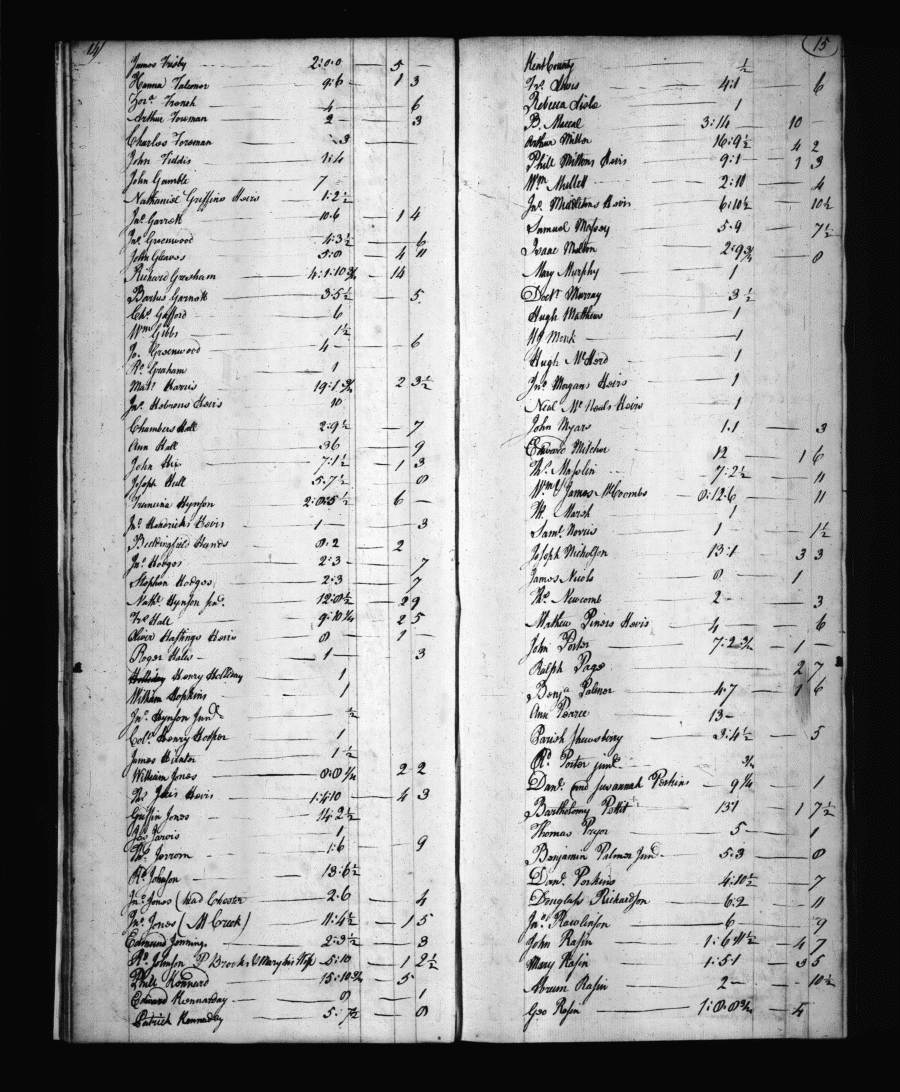 14
James Frisby 2:0.0 5 -
Hanna Falconer 9:6 1 3
French 4 6
Arthur Foreman 2 3
Charles Foreman 3
John Fiddis 1:4
John Gamble 7
Nathaniel Griffins Heirs 1:2½
Jno. Garrett 10.6 1 4
Jno. Greenwood 4:3½ 6
John Gleaves 5:8 4 11
Richard Gresham 4:1:10¾ 14
Bartus Garnett 3:5½ 5
Chs. Gafford 6
Wm Gibbs 1½
Jo. Greenwood 4 6
Rd. Graham 1
Mat. Harris 19:1¾ 2 3½
Jno. Hebrons Heirs 10
Chambers Hall 2:9½ 7
Ann Hall 36 9
John Hix 7:1½ 1 3
Joseph Hull 5:7½ 8
Francina Hynson 2:0:5½ 6 -
Jno. Hendricks Heirs 1 3
Beddingfield Hands 8:2 2
Jno. Hodges 2:3 7
Stephen Hodges 2:3 7
Nathl. Hynson Junr. 12:8½ 2 9
Hall 9:10¼ 2 5
Oliver Hastings Heirs 8 1 -
Roger Hales 1 3
Henry Holliday 1
William Hopkins 1
Jno. Hynson Jund. ½
Coll. Henry Hosper 1
James Hunter 1½
William Jones 8:8¼ 2 2
Heirs 1:4:10 4 3
Griffin Jones 14:2½
Jarvis 1
Jerrom 1:6 9
Rd. Johnson 13:6½
Jno. Jones (Chester 2:6 4
Jno. Jones (M Creek) 11:4½ 1 5
Edmund Jennings 2:3½ 3
Rd. Johnson P Brooks & Mary his Wife 5:10 1 2½
Phill Kennard 15:10¾ 5
Edward Kennarday 8 1
Patrick Kennedy 5:7½ 8
15
Kent County ½
Lewis 4:1 6
Rebecca Lisle 1
B. Maccal 3:14 10
Arthur Miller 16:9½ 4 2
Phill Miltons Heirs 9:1 1 3
Wm Mullett 2:11 4
Jno. Middletons Heirs 6:10½ 10½
Samuel Massey 5.9 7½
Isaac Melton 2:9¾ 8
Mary Murphy 1
Doctr Murray 3½
Hugh Matthews 1
Monk 1
Hugh McHerd 1
Jno. Morgans Heirs 1
Neal McNeals Heirs 1
John Myars 1.1 3
Edward Mitchel 12 1 6
Ths. Maslin 7:2½ 11
Wm & James McCoombs 8:12.6 11
Marsh 1
Saml. Norris 1 1½
Joseph Nicholson 13:1 3 3
James Nicols 8 1
Ths. Newcomb 2 3
Mathew Piners Heirs 4 6
John Porter 7:2¾ 1 -
Ralph Page 2 7
Benja. Palmer 4.7 1 6
Ann Pearce 13
Parish Shewsberry 3:4½ 5
Rd. Porter jund. ¾
Danl. and Suvannah Perkins 9¼ 1
Bartholomy Pettit 13:1 1 7½
Thomas Pryor 5 1
Benjamin Palmer Jund. 5.3 8
Danl. Perkins 4:10½ 7
Douglass Richardson 6:2 11
Jno. Rawlinson 6 9
John Rasin 1:6:11½ 4 7
Mary Rasin 1:5:1 3 5
Abram Rasin 2 10½
Geo Rasin 1:8.8¾ 4